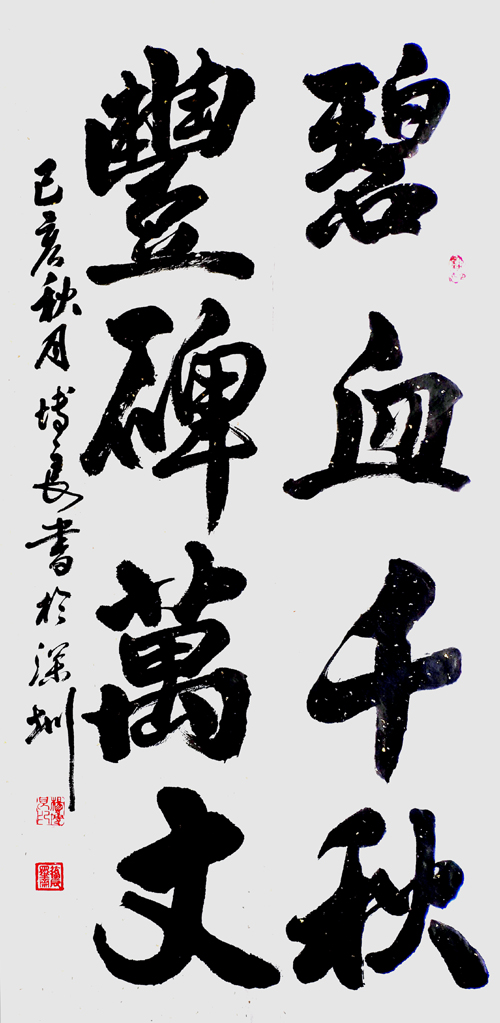 碧血千秋
豐碑萬丈
己亥秋月博長書於深圳